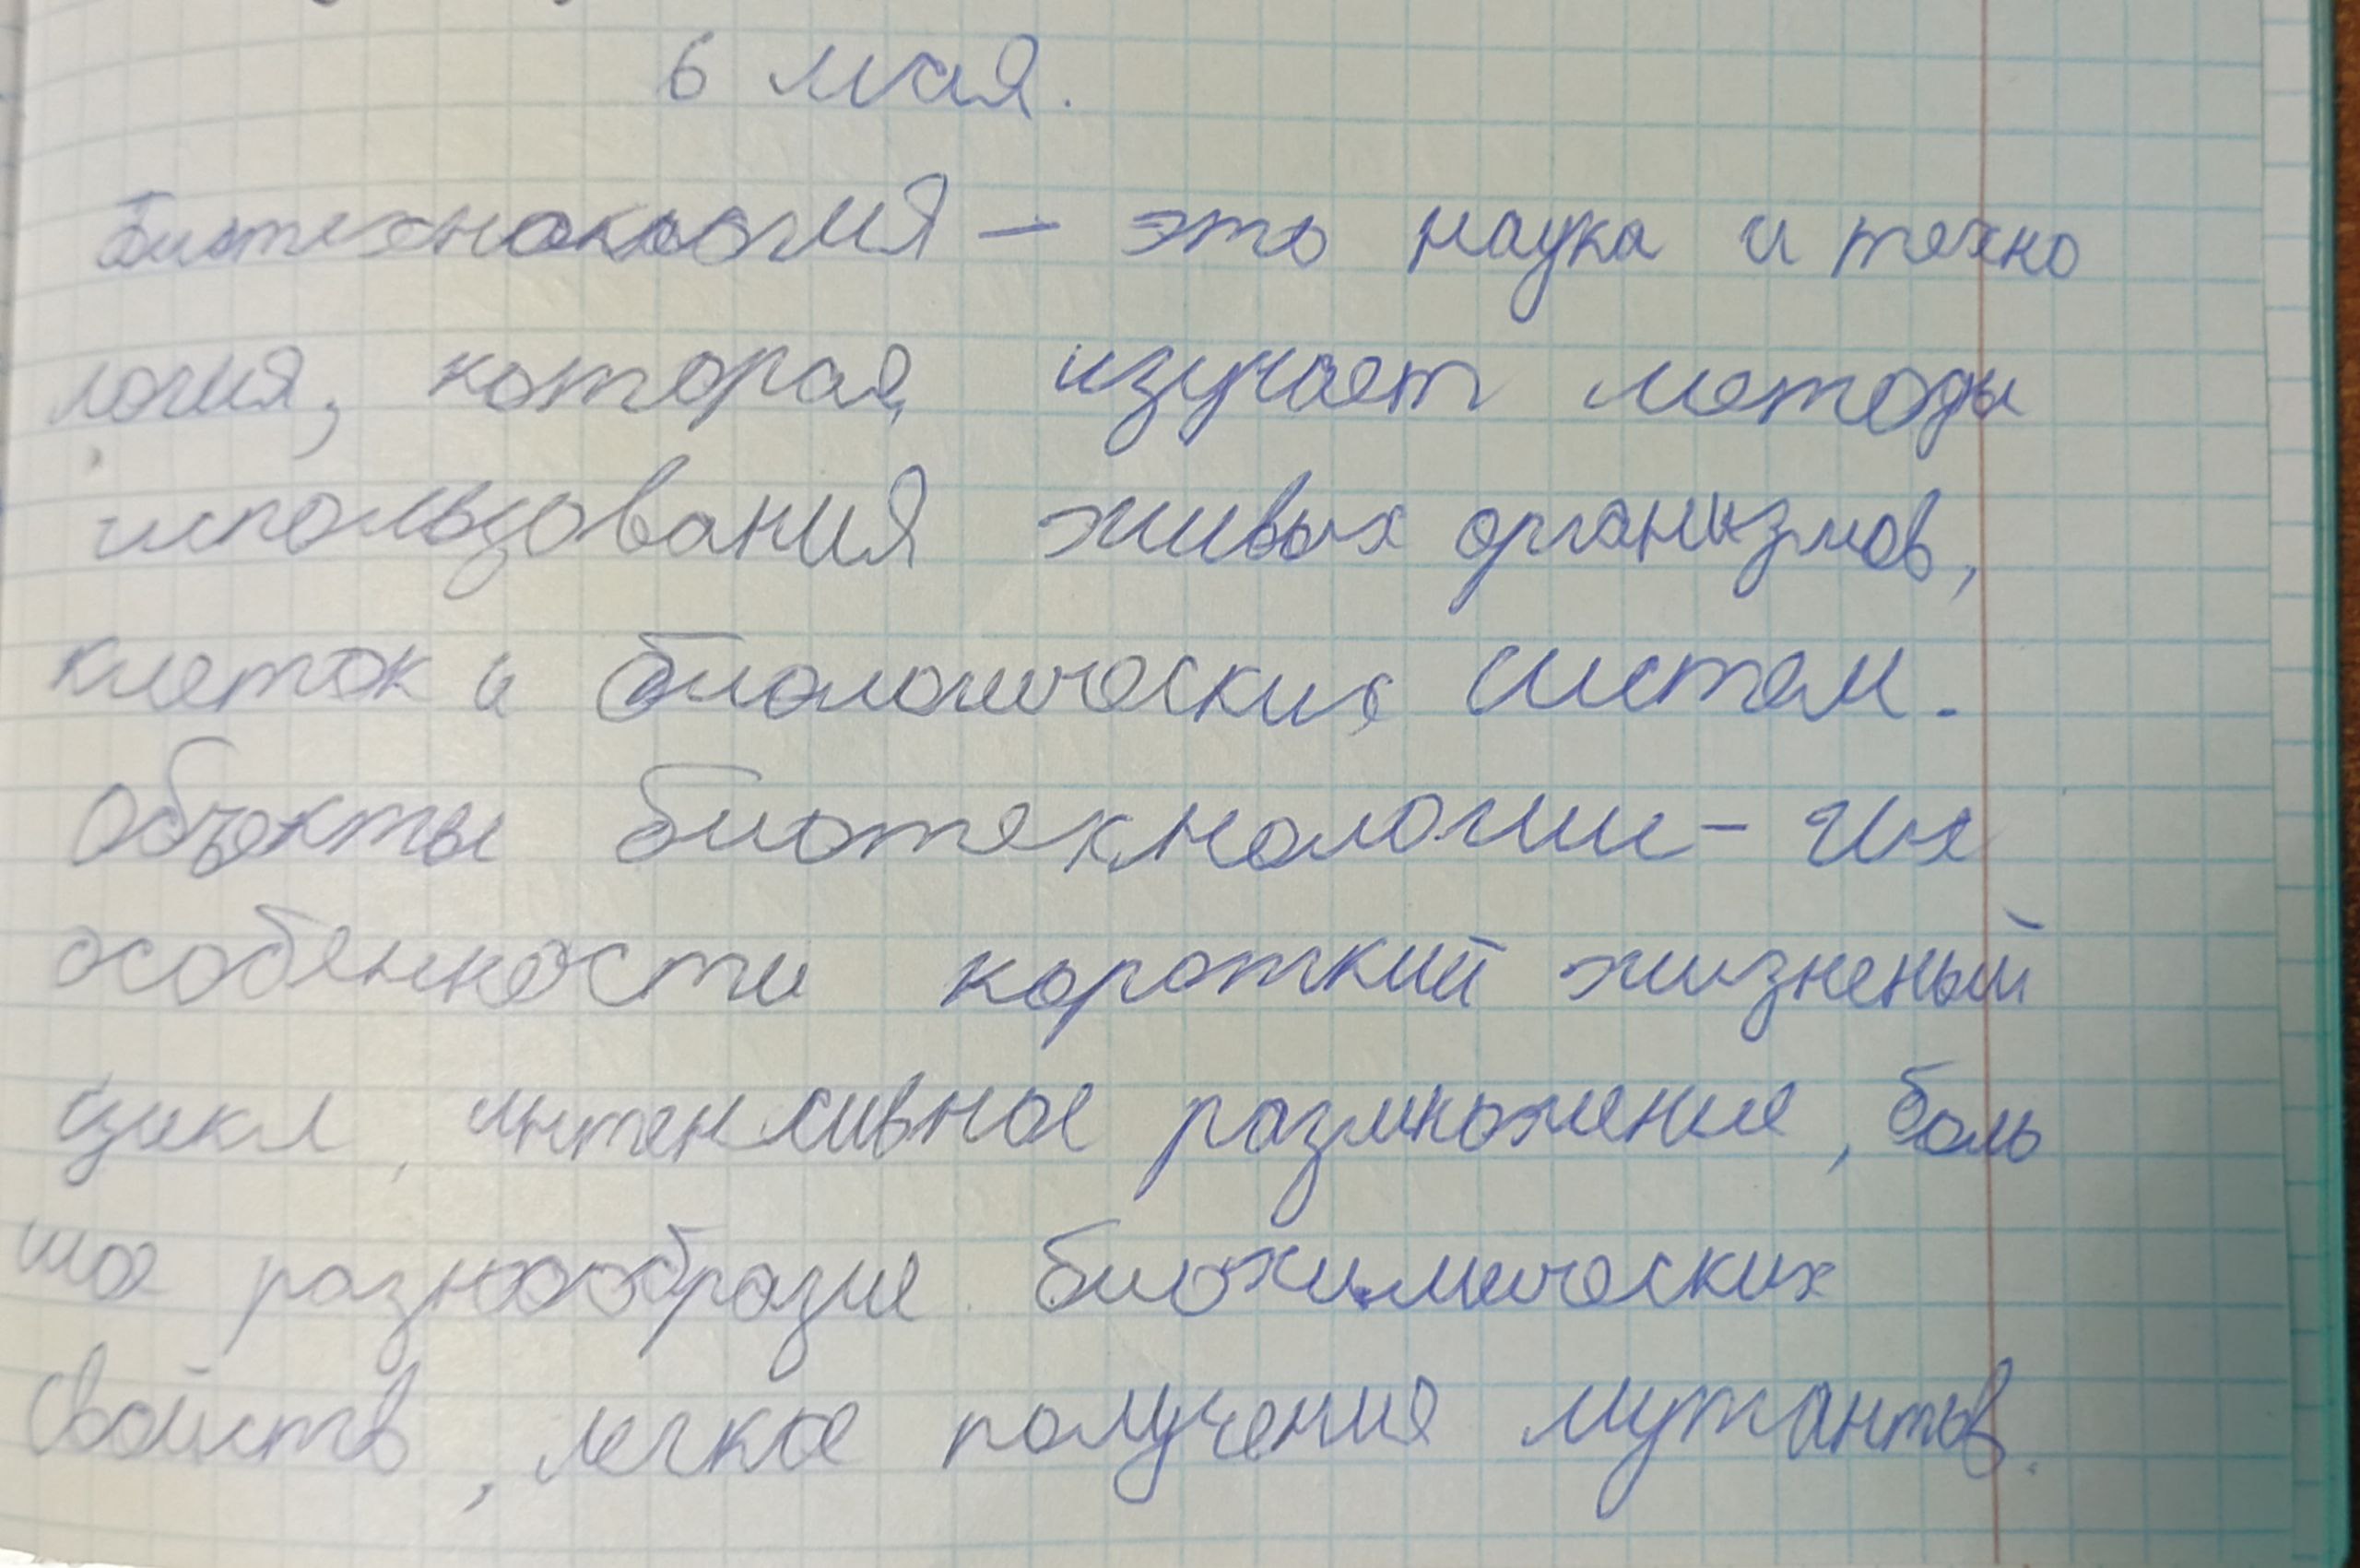 6 мая.
Биотехнология – это наука и техно
логия, которая изучает методы
использования живых организмов,
клеток и биологических систем.
Объекты биотехнологии – их
особенности короткий жизненый
цикл, интенсивное размножение, боль
шое разнообразие биохимических
свойств, легкое получение мутантов.